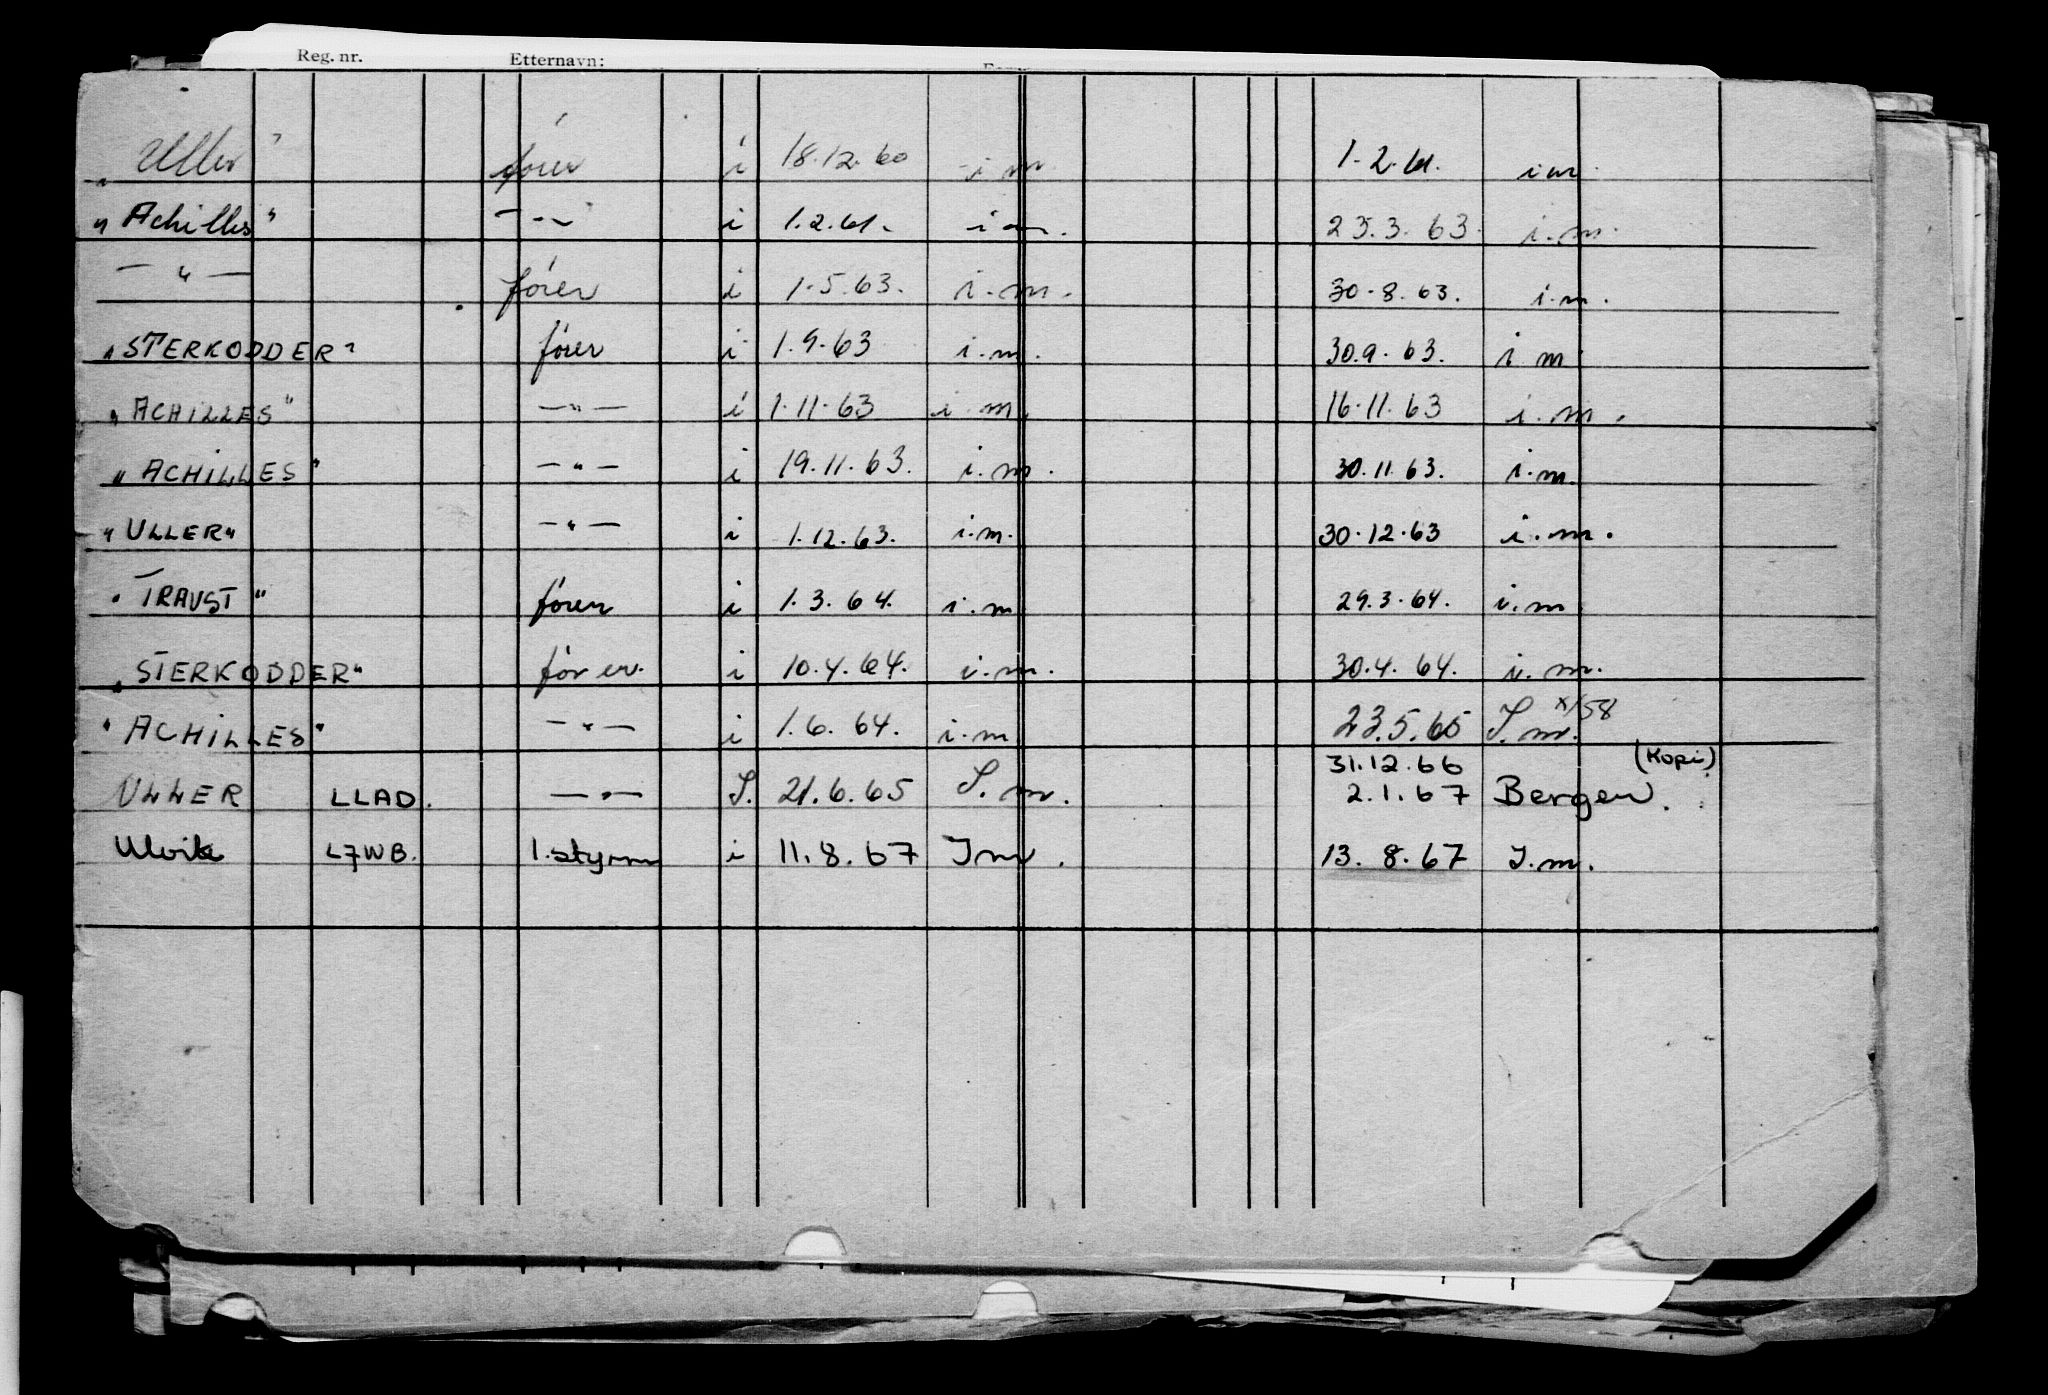 Reg. nr. Etternavn:
"Uller" fører i 18.12.60 i m 1.2.61. i m.
"Achilles" — " — i 1.2.61. i m. 23.3.63. i.m.
— " — fører i 1.5.63. i.m. 30.8.63. i.m.
"STERKODDER" fører i 1.9.63 i.m. 30.9.63. i m
"ACHILLES" — " — i 1.11.63 i.m. 16.11.63 i.m.
"ACHILLES" — " — i 19.11.63. i.m. 30.11.63. i.m.
"ULLER" — " — i 1.12.63. i.m. 30.12.63 i.m.
"TRAUST" fører i 1.3.64. i.m 29.3.64. i.m
"STERKODDER" fører. i 10.4.64. i.m. 30.4.64. i.m.
"ACHILLES" — " — i 1.6.64. i.m 23.5.65 I.m. x/58
31.12.66 (Kopi)
ULLER LLAD. — " — I. 21.6.65 I.m. 2.1.67 Bergen.
Ulvik L7WB. 1.styrm i 11.8.67 Im. 13.8.67 I.m.